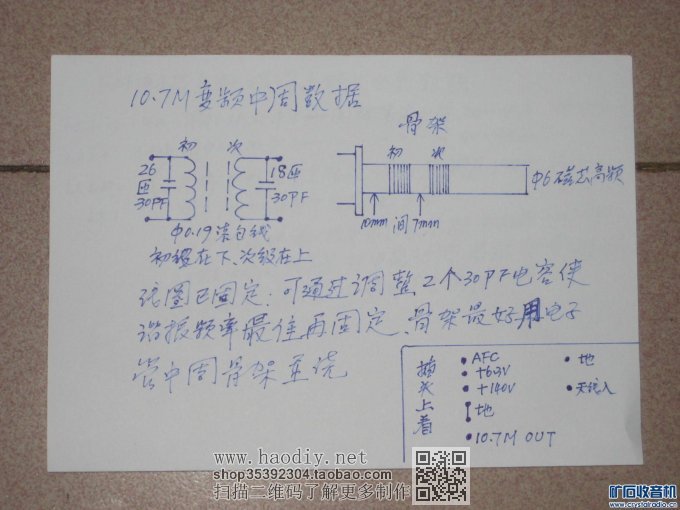 10.7M变频中周数据
骨架
初 次
初 次
26匝
30PF
18匝
30PF
Φ6磁芯高频
10mm 间7mm
Φ0.19漆包线
初级在下、次级在上
线圈已固定;可通过调整2个30PF电容使
谐振频率最佳再固定、骨架最好用电子
管中周骨架重绕
插头上看
AFC
+6.3V
+140V
地
10.7M OUT
地
天线入
www.haodiy.net
shop35392304.taobao.com
扫描二维码了解更多制作
矿石收音机
www.crystalradio.cn